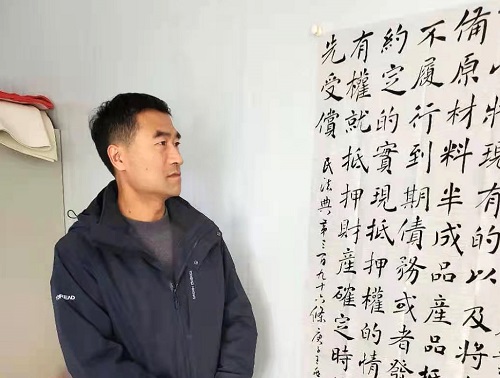 將現有的以及將
備原材料半成品產品抵
不履行到期債務或者發
約定的實現抵押權的情
有權就抵押財產確定時
先受償
民法典第三百九十六條 庚子
HEAD